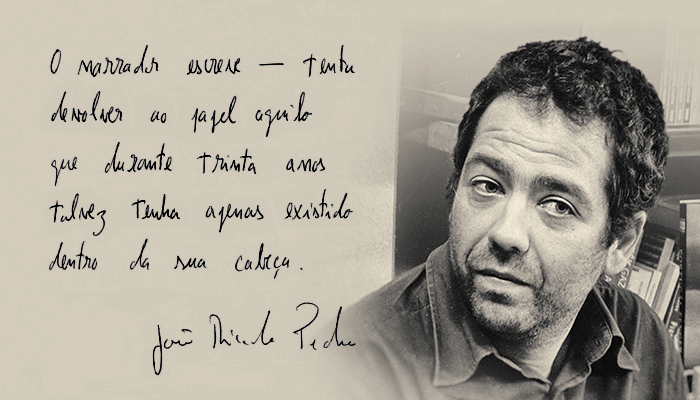 O narrador escreve — tenta
devolver ao papel aquilo
que durante trinta anos
talvez tenha apenas existido
dentro da sua cabeça.
João Ricardo Pedro